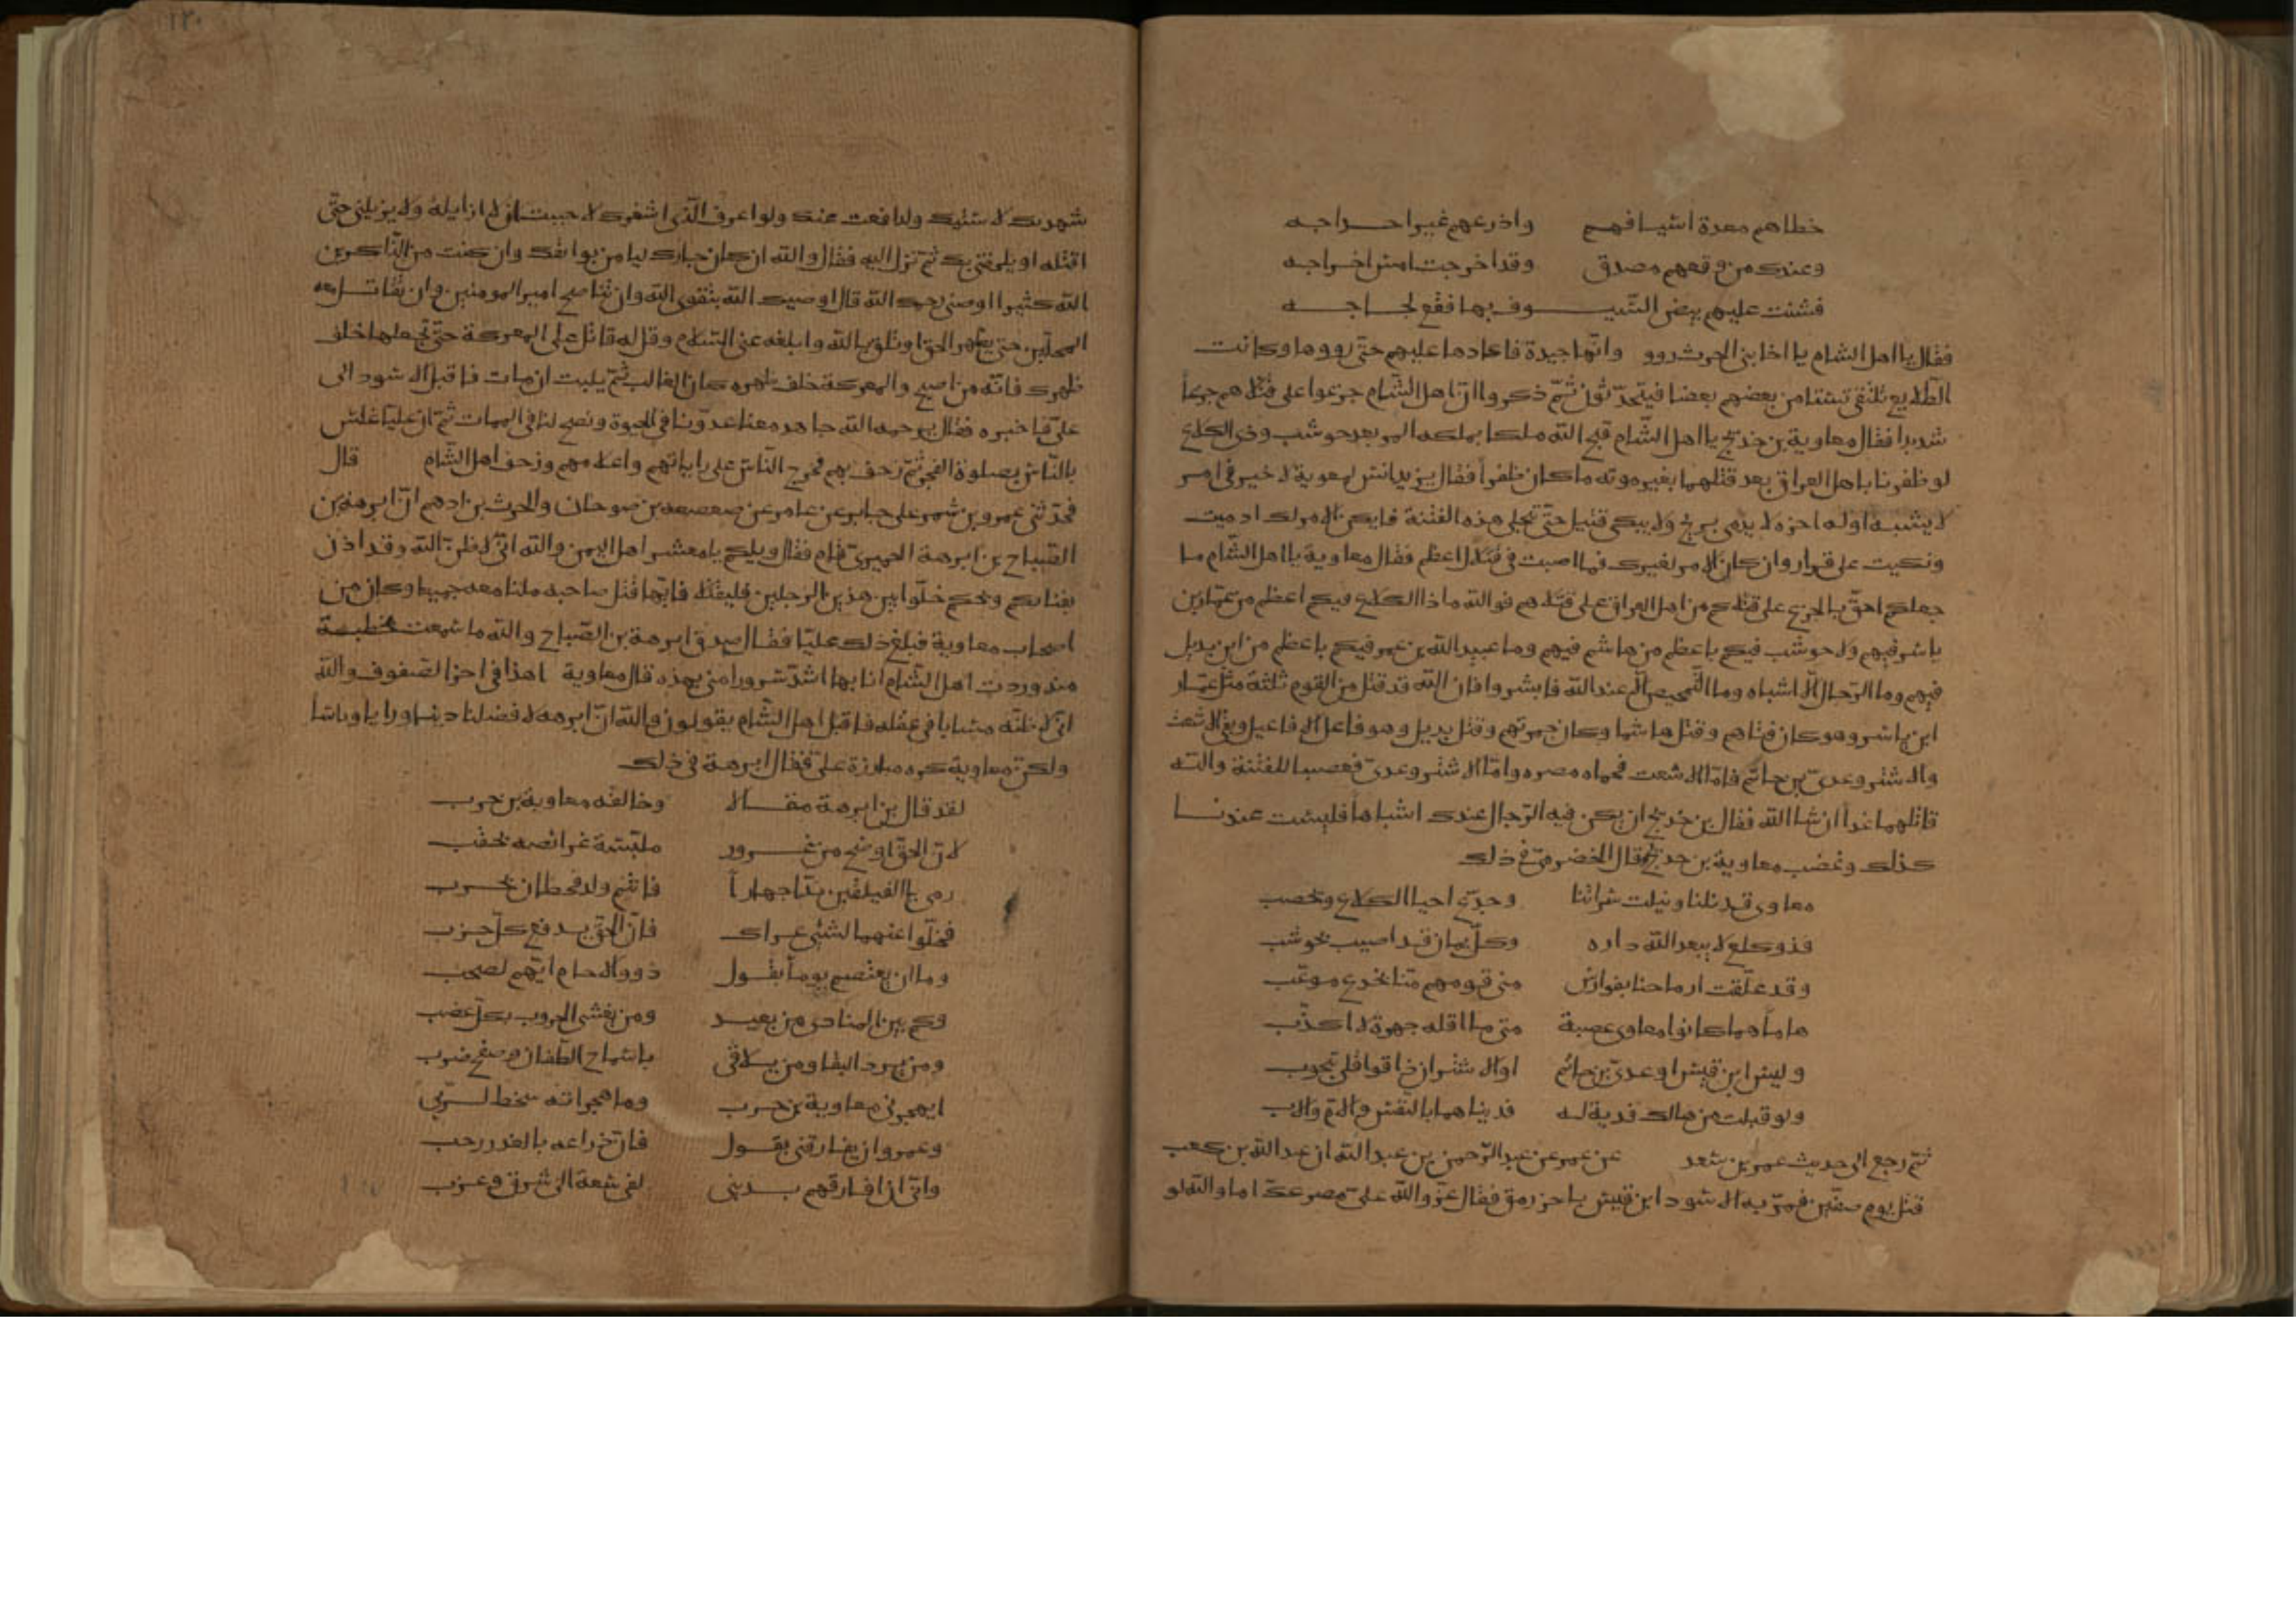 خطاهم معدة اسيافهم واذرعهم غير اخراجه
وعندك من وقعهم مصدق وقد اخرجت امس اخراجه
فشنت عليهم ببض السيوف بها فقع لجاجه
فقال يا اهل الشام يا اخا بني الحرث روو وانها جيدة فاعادها عليهم حتى رووها وكانت
الطلايع تلتقي تستامن بعضهم بعضا فيتحدثون ثم ذكروا ان اهل الشام جزعوا على قتلاهم جزعا
شديدا فقال معاوية بن خديج يا اهل الشام قبح الله ملكا يملكه المر بعد حوشب وذي الكلاع
لو ظفرنا باهل العراق بعد قتلهما بغير موته ما كان ظفرا فقال يزيد انس لمعوية لا خير في امر
لا يشبه اوله اخره لا يدمى جريح ولا يبكى قتيل حتى تجلى هذه الفتنة فان يكن الامر لك ادميت
وبكيت على قرار وان كان الامر لغيرك فما اصبت فيه اعظم فقال معاوية يا اهل الشام ما
جعلكم احق بالجزع على قتلاكم من اهل العراق على قتلاهم فوالله ما ذا الكلاع فيكم اعظم من عمار بن
ياسر فيهم ولا حوشب فيكم باعظم من هاشم فيهم وما عبيد الله بن عمر فيكم باعظم من ابن بديل
فيهم وما الرجال الا اشباه وما التمحيص الا من عند الله فابشروا فان الله قد قتل من القوم ثلثة قتل عمار
ابن ياسر وهو كان فتاهم وقتل هاشما وكان جمرتهم وقتل بديل وهو فاعل الافاعيل وبقي الاشعث
والاشتر وعدي بن حاتم فاما الاشعث فحماه مصره واما الاشتر وعدي فغضبا للفتنة والله
قاتلهما غدا ان شا الله فقال بن خديج ان يكن فيه الرجال عندك اشباها فليست عندنا
كذلك وغضب معاوية بن خديج وقال الحضرمي في ذلك
معاوي قد نلنا ونيلت سراتنا وجدع احيا الكلاع ويحصب
فذو كلع لا يبعد الله داره وكل يمان قد اصيب بحوشب
وقد علقت ارماحنا بفوارس منى قومهم منا بخدع موعب
هما ما هما كانوا معاوي عصبة متى ما اقله جهرة لا اكذب
وليس ابن قيس او عدي بن حاتم او الاشتر ان ذاقوا قلى بحوب
ولو قبلت من هالك فدية له فديناهما بالنفس والام والاب
ثم رجع الى حديث عمر بن سعد عن عمر عن عبد الرحمن بن عبد الله ان عبد الله بن كعب
قتل يوم صفين فمر به الاسود ابن قيس باخر رمق فقال عز والله علي مصرعك اما والله لو
شهدتك لاسيتك ولدافعت عنك ولو اعرف الذي اشعرك لاحببت ان لا ازايله ولا يزيلني حتى
اقتله او يلحقني بك ثم نزل اليه فقال والله ان كان جارك ليامن بوايقك وان كنت من الذاكرين
الله كثيرا اوصني رحمك الله قال اوصيك الله بتقوى الله وان تناصح امير المومنين وان تقاتل معه
المحلين حتى يظهر الحق او تلحق بالله وابلغه عني السلام وقل له قاتل على المعركة حتى تجعلها خلف
ظهرك فانه من اصبح والمعركة خلف ظهره كان الغالب ثم يلبث ان مات فاقبل الاسود الى
علي فاخبره فقال يرحمه الله جاهد معنا عدونا في الحيوة ونصح لنا في الممات ثم ان عليا غلس
بالناس بصلوة الفجر ثم زحف بهم فخرج الناس على راياتهم واعلامهم وزحف اهل الشام قال
فحدثني عمرو بن شمر على جابر عن عامر عن صعصعه بن صوحان والحرث بن ادهم ان ابرهة بن
الصباح بن ابرهة الحميري قام فقال ويلكم يا معشر اهل اليمن والله اني لاظن الله وقد اذن
بفنايكم ويحكم خلوا بين هذين الرجلين فليقتتلا فايهما قتل صاحبه ملنا معه جميعا وكان من
اصحاب معاوية فبلغ ذلك عليا فقال صدق ابرهة بن الصباح والله ما سمعت بخطبة
منذ وردت اهل الشام انا بها اشد سرورا مني بهذه قال معاوية اهذا في اخر الصفوف والله
اني لاظنه مصابا في عقله فاقبل اهل الشام يقولون والله ان ابرهه لافضلنا دينا ورايا وباسا
ولكن معاوية كره مبارزة علي فقال ابرهة في ذلك
لقد قال بن ابرهة مقالا وخالفه معاوية بن حرب
لان الحق اوضح من غرور ملبسة غرائصه بحقب
رمى بالفيلقين بنا جهارا فانتم ولد قحطان بحرب
فخلوا عنهما لشي عراك فان الحق يدفع كل حرب
وما ان يعتصم يوما بقول ذوو الارحام انهم لصحب
وكم بين المنادي من بعيد ومن يغشى الحروب بكل عضب
ومن يرد البقا ومن يلاقي باسماح الطعان وصفح ضرب
ايهجرني معاوية بن حرب وما هجرانه سخط لربي
وعمرو ان يفارقني بقول فان ذراعه بالغدر رحب
واني ان افارقهم بديني لفي سعة الى شرق وغرب